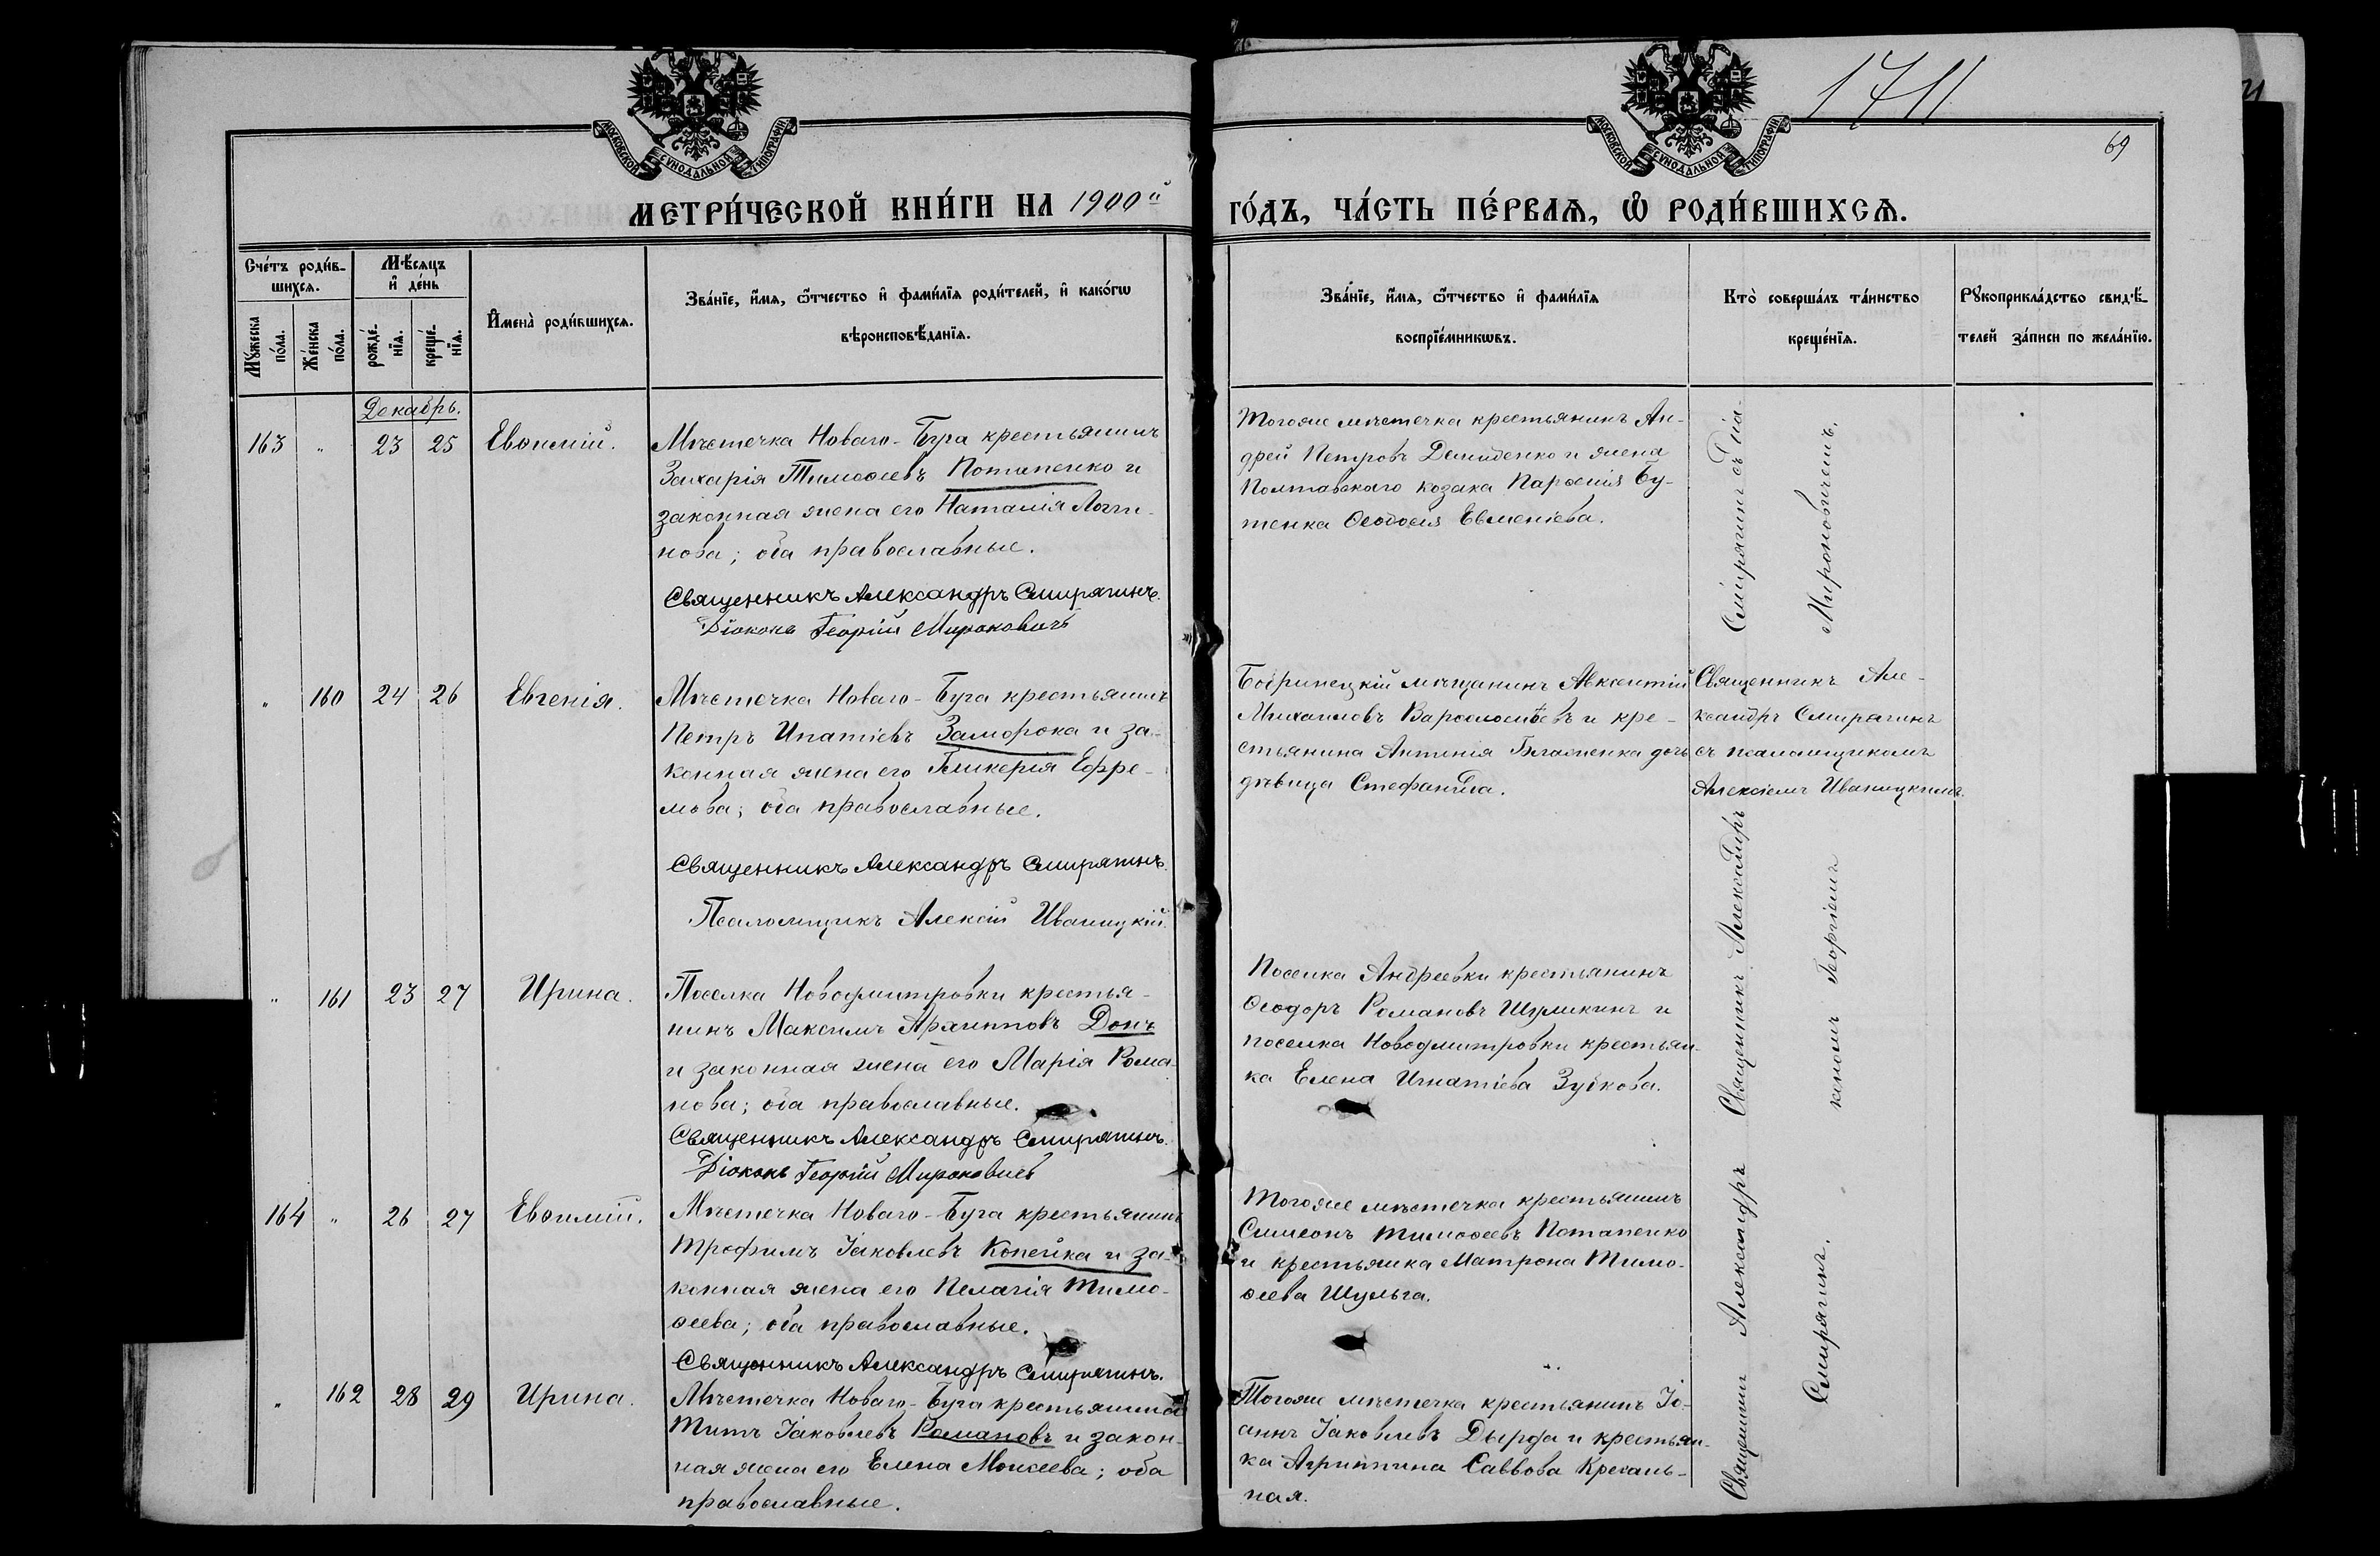 1711
69
МОСКОВСКОЙ СѴНОДАЛЬНОЙ ТИПОГРАФІИ
МОСКОВСКОЙ СѴНОДАЛЬНОЙ ТИПОГРАФІИ
МЕТРИ́ЧЕСКОЙ КНИ́ГИ НА 1900й
ГО́ДЪ, ЧА́СТЬ ПЕ́РВАѦ, Ѡ҆ РОДИ́ВШИХСѦ.
Сче́тъ роди́в-
шихсѧ.
Мꙋ́жеска по́ла.
Же́нска по́ла.
Мѣ́сѧцъ
и҆ де́нь
рожде́-
нїѧ.
креще́-
нїѧ.
И҆мена̀ роди́вшихсѧ.
Зва́нїе, и҆́мѧ, ѻ҆́тчество и҆ фами́лїѧ роди́телей, и҆ како́гѡ
вѣроисповѣ́данїѧ.
Зва́нїе, и҆́мѧ, ѻ҆́тчество и҆ фами́лїѧ
воспрїе́мникѡвъ.
Кто̀ соверша́лъ та́инство
креще́нїѧ.
Рꙋкоприкла́дство свидѣ́-
телей за́писи по жела́нїю.
Декабрь.
163 " 23 25 Евѳимій.
Мѣстечка Новаго-Буга крестьянинъ
Захарія Тимоѳеевъ Потапенко и
законная жена его Наталія Логги-
нова; оба православные.
Священникъ Александръ Смирягинъ.
Діаконъ Георгій Мироновичъ
Тогоже мѣстечка крестьянинъ Ан-
дрей Петровъ Демиденко и жена
Полтавскаго козака Парѳенія Бу-
тенка Ѳеодосія Евменіева.
" 160 24 26 Евгенія.
Мѣстечка Новаго-Буга крестьянинъ
Петръ Игнатіевъ Заморока и за-
конная жена его Гликерія Ефре-
мова; оба православные.
Священникъ Александръ Смирягинъ.
Псаломщикъ Алексій Иваницкій.
Бобринецкій мѣщанинъ Авксентій
Михаиловъ Варѳоломѣевъ и кре-
стьянина Антонія дочь
дѣвица Стефанида.
Священникъ Але-
ксандръ Смирягинъ
съ псаломщикомъ
Алексіемъ Иваницкимъ.
" 161 23 27 Ирина.
Поселка Новодмитровки крестья-
нинъ Максимъ Архипповъ Донъ
и законная жена его Марія Рома-
нова; оба православные.
Священникъ Александръ Смирягинъ.
Діаконъ Георгій Мироновичъ
Поселка Андреевки крестьянинъ
Ѳеодоръ Романовъ Шумикинъ и
поселка Новодмитровки крестьян-
ка Елена Игнатіева Зубкова.
Священникъ Александръ
Смирягинъ съ діа-
кономъ Георгіемъ
Мироновичемъ.
164 " 26 27 Евѳимій.
Мѣстечка Новаго-Буга крестьянинъ
Трофимъ Іаковлевъ Копейка и за-
конная жена его Пелагія Тимо-
ѳеева; оба православные.
Священникъ Александръ Смирягинъ.
Тогоже мѣстечка крестьянинъ
Симеонъ Тимоѳеевъ Потапенко
и крестьянка Матрона Тимо-
ѳеева Шульга.
" 162 28 29 Ирина.
Мѣстечка Новаго-Буга крестьянинъ
Титъ Іаковлевъ Романовъ и закон-
ная жена его Елена Моисеева; оба
православные.
Тогоже мѣстечка крестьянинъ Іо-
аннъ Іаковлевъ Дырда и крестьян-
ка Агриппина Саввова
ная.
Священникъ Александръ
Смирягинъ.